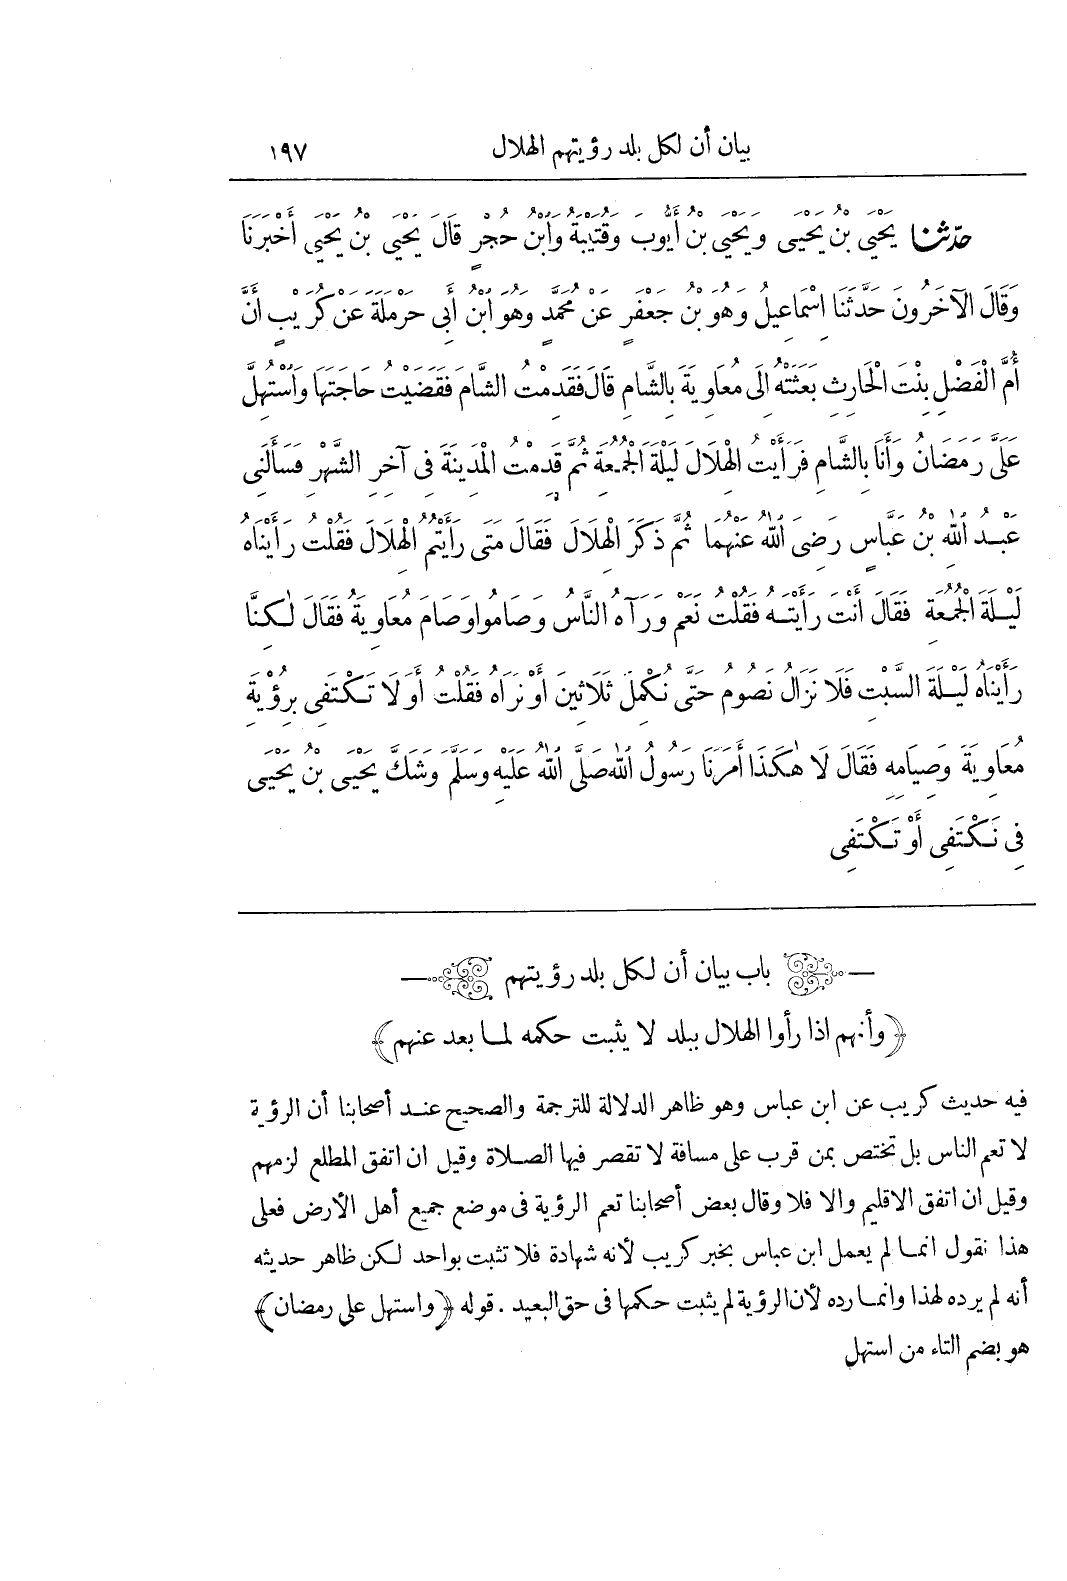 بيان أن لكل بلد رؤيتهم الهلال ١٩٧
حدّثنا يَحْيَى بْنُ يَحْيَى وَيَحْيَى بْنُ أَيُّوبَ وَقُتَيْبَةُ وَابْنُ حُجْرٍ قَالَ يَحْيَى بْنُ يَحْيَى أَخْبَرَنَا
وَقَالَ الآخَرُونَ حَدَّثَنَا إِسْمَاعِيلُ وَهُوَ بْنُ جَعْفَرٍ عَنْ مُحَمَّدٍ وَهُوَ ابْنُ أَبِى حَرْمَلَةَ عَنْ كُرَيْبٍ أَنَّ
أُمَّ الْفَضْلِ بِنْتَ الْحَارِثِ بَعَثَتْهُ إِلَى مُعَاوِيَةَ بِالشَّامِ قَالَ فَقَدِمْتُ الشَّامَ فَقَضَيْتُ حَاجَتَهَا وَاسْتُهِلَّ
عَلَىَّ رَمَضَانُ وَأَنَا بِالشَّامِ فَرَأَيْتُ الْهِلَالَ لَيْلَةَ الْجُمُعَةِ ثُمَّ قَدِمْتُ الْمَدِينَةَ فِى آخِرِ الشَّهْرِ فَسَأَلَنِى
عَبْدُ اللهِ بْنُ عَبَّاسٍ رَضِىَ اللهُ عَنْهُمَا ثُمَّ ذَكَرَ الْهِلَالَ فَقَالَ مَتَى رَأَيْتُمُ الْهِلَالَ فَقُلْتُ رَأَيْنَاهُ
لَيْلَةَ الْجُمُعَةِ فَقَالَ أَنْتَ رَأَيْتَهُ فَقُلْتُ نَعَمْ وَرَآهُ النَّاسُ وَصَامُوا وَصَامَ مُعَاوِيَةُ فَقَالَ لٰكِنَّا
رَأَيْنَاهُ لَيْلَةَ السَّبْتِ فَلَا نَزَالُ نَصُومُ حَتَّى نُكْمِلَ ثَلَاثِينَ أَوْ نَرَاهُ فَقُلْتُ أَوَ لَا تَكْتَفِى بِرُؤْيَةِ
مُعَاوِيَةَ وَصِيَامِهِ فَقَالَ لَا هٰكَذَا أَمَرَنَا رَسُولُ اللهِ صَلَّى اللهُ عَلَيْهِ وَسَلَّمَ وَشَكَّ يَحْيَى بْنُ يَحْيَى
فِى نَكْتَفِى أَوْ تَكْتَفِى
باب بيان أن لكل بلد رؤيتهم
﴿وأنهم اذا رأوا الهلال ببلد لا يثبت حكمه لما بعد عنهم﴾
فيه حديث كريب عن ابن عباس وهو ظاهر الدلالة للترجمة والصحيح عند أصحابنا أن الرؤية
لا تعم الناس بل تختص بمن قرب على مسافة لا تقصر فيها الصلاة وقيل ان اتفق المطلع لزمهم
وقيل ان اتفق الاقليم والا فلا وقال بعض أصحابنا تعم الرؤية فى موضع جميع أهل الأرض فعلى
هذا نقول انما لم يعمل ابن عباس بخبر كريب لأنه شهادة فلا تثبت بواحد لكن ظاهر حديثه
أنه لم يرده لهذا وانما رده لأن الرؤية لم يثبت حكمها فى حق البعيد . قوله ﴿واستهل على رمضان﴾
هو بضم التاء من استهل